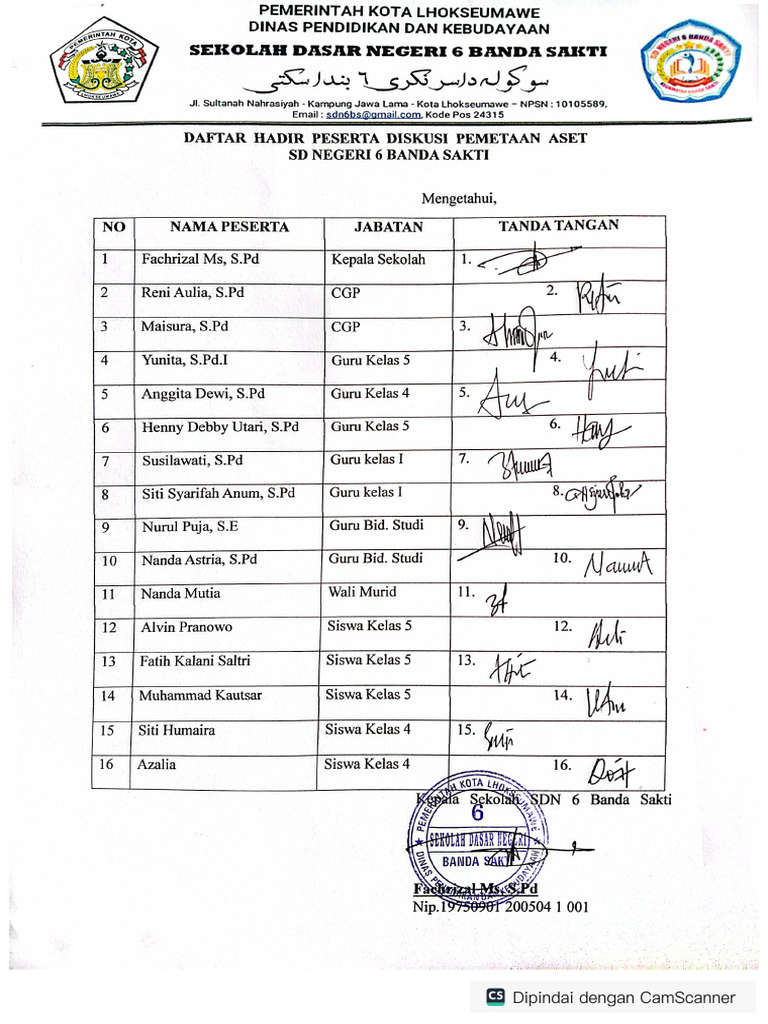 PEMERINTAH KOTA LHOKSEUMAWE
DINAS PENDIDIKAN DAN KEBUDAYAAN
SEKOLAH DASAR NEGERI 6 BANDA SAKTI
سكوله داسر نڬري ٦ بندا سكتي
Jl. Sultanah Nahrasiyah - Kampung Jawa Lama - Kota Lhokseumawe – NPSN : 10105589,
Email : sdn6bs@gmail.com, Kode Pos 24315
PEMERINTAH KOTA
LHOKSEUMAWE
SD NEGERI 6 BANDA SAKTI
DAFTAR HADIR PESERTA DISKUSI PEMETAAN ASET
SD NEGERI 6 BANDA SAKTI
Mengetahui,
NO NAMA PESERTA JABATAN TANDA TANGAN
1 Fachrizal Ms, S.Pd Kepala Sekolah 1.
2 Reni Aulia, S.Pd CGP 2.
3 Maisura, S.Pd CGP 3.
4 Yunita, S.Pd.I Guru Kelas 5 4.
5 Anggita Dewi, S.Pd Guru Kelas 4 5.
6 Henny Debby Utari, S.Pd Guru Kelas 5 6.
7 Susilawati, S.Pd Guru kelas I 7.
8 Siti Syarifah Anum, S.Pd Guru kelas I 8.
9 Nurul Puja, S.E Guru Bid. Studi 9.
10 Nanda Astria, S.Pd Guru Bid. Studi 10.
11 Nanda Mutia Wali Murid 11.
12 Alvin Pranowo Siswa Kelas 5 12.
13 Fatih Kalani Saltri Siswa Kelas 5 13.
14 Muhammad Kautsar Siswa Kelas 5 14.
15 Siti Humaira Siswa Kelas 4 15.
16 Azalia Siswa Kelas 4 16.
Kepala Sekolah SDN 6 Banda Sakti
PEMERINTAH KOTA LHOKSEUMAWE
6
SEKOLAH DASAR NEGERI
BANDA SAKTI
Fachrizal Ms, S.Pd
Nip.19750901 200504 1 001
CS Dipindai dengan CamScanner